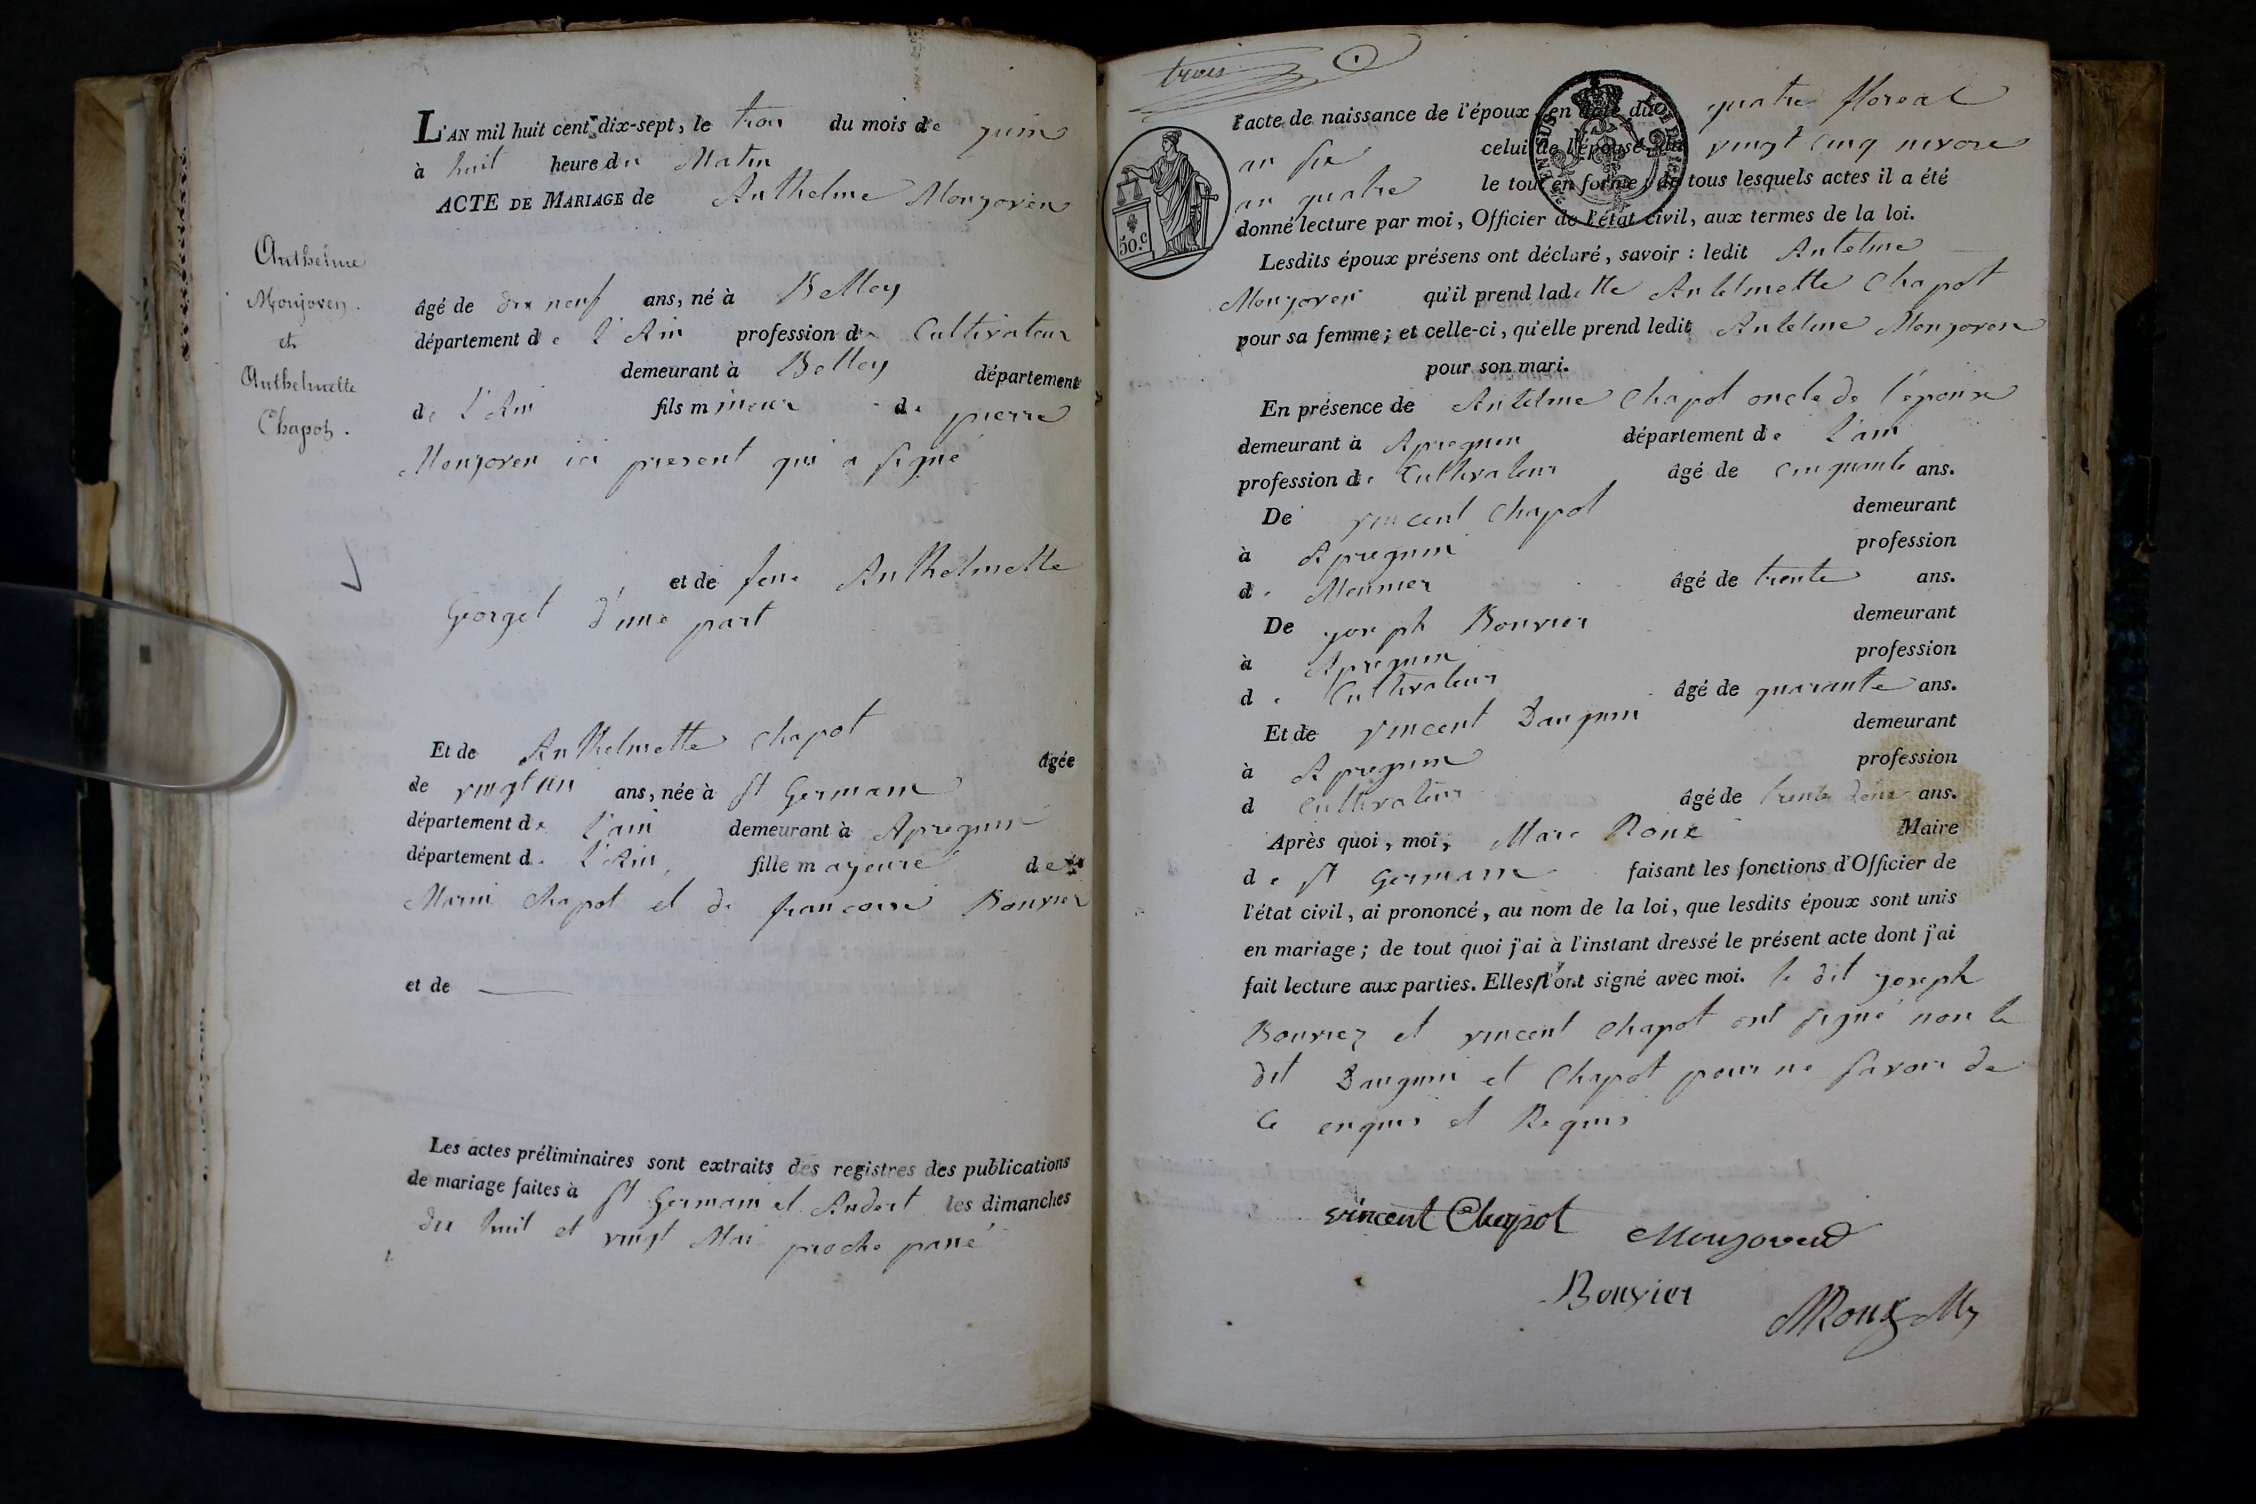 L'AN mil huit cent dix-sept, le trois du mois de juin
à huit heure du Matin
ACTE DE MARIAGE de Anthelme Monjoven
Anthelme
Monjoven.
et
Anthelmette
Chapot.
âgé de dix neuf ans, né à Belley
département de l'Ain profession de Cultivateur
demeurant à Belley département
de l'Ain fils mineur de pierre
Monjoven ici present qui a signé
et de feue Anthelmette
Georget d'une part
Et de Anthelmette Chapot âgée
de vingt un ans, née à St Germain
département de l'ain demeurant à Apregnin
département de l'Ain, fille mayeure de
Marin Chapot et de francoise Bouvier
et de
Les actes préliminaires sont extraits des registres des publications
de mariage faites à St Germain et Andert les dimanches
du huit et vingt Mai proche passé
trois
50.c
l'acte de naissance de l'époux en date du quatre floreal
an six celui de l'épouse du vingt cinq nivose
an quatre le tout en forme; de tous lesquels actes il a été
donné lecture par moi, Officier de l'état civil, aux termes de la loi.
Lesdits époux présens ont déclaré, savoir : ledit Antelme
Monjoven qu'il prend ladette Antelmette Chapot
pour sa femme; et celle-ci, qu'elle prend ledit Antelme Monjoven
pour son mari.
En présence de Antelme Chapot oncle de l'épouse
demeurant à Apregnin département de l'ain
profession de Cultivateur âgé de cinquante ans.
De vincent Chapot demeurant
à Apregnin profession
de Meunier âgé de trente ans.
De joseph Bouvier demeurant
à Apregnin profession
de Cultivateur âgé de quarante ans.
Et de vincent Danguin demeurant
à Apregnin profession
d Cultivateur âgé de trente deux ans.
Après quoi, moi, Marc Roux Maire
de St Germain faisant les fonctions d'Officier de
l'état civil, ai prononcé, au nom de la loi, que lesdits époux sont unis
en mariage; de tout quoi j'ai à l'instant dressé le présent acte dont j'ai
fait lecture aux parties. Elles n'ont signé avec moi. le dit joseph
Bouvier et vincent Chapot ont signé non le
dit Danguin et Chapot pour ne savoir de
ce enquis et Requis
vincent Chapot Monjoven
Bouvier MRoux My